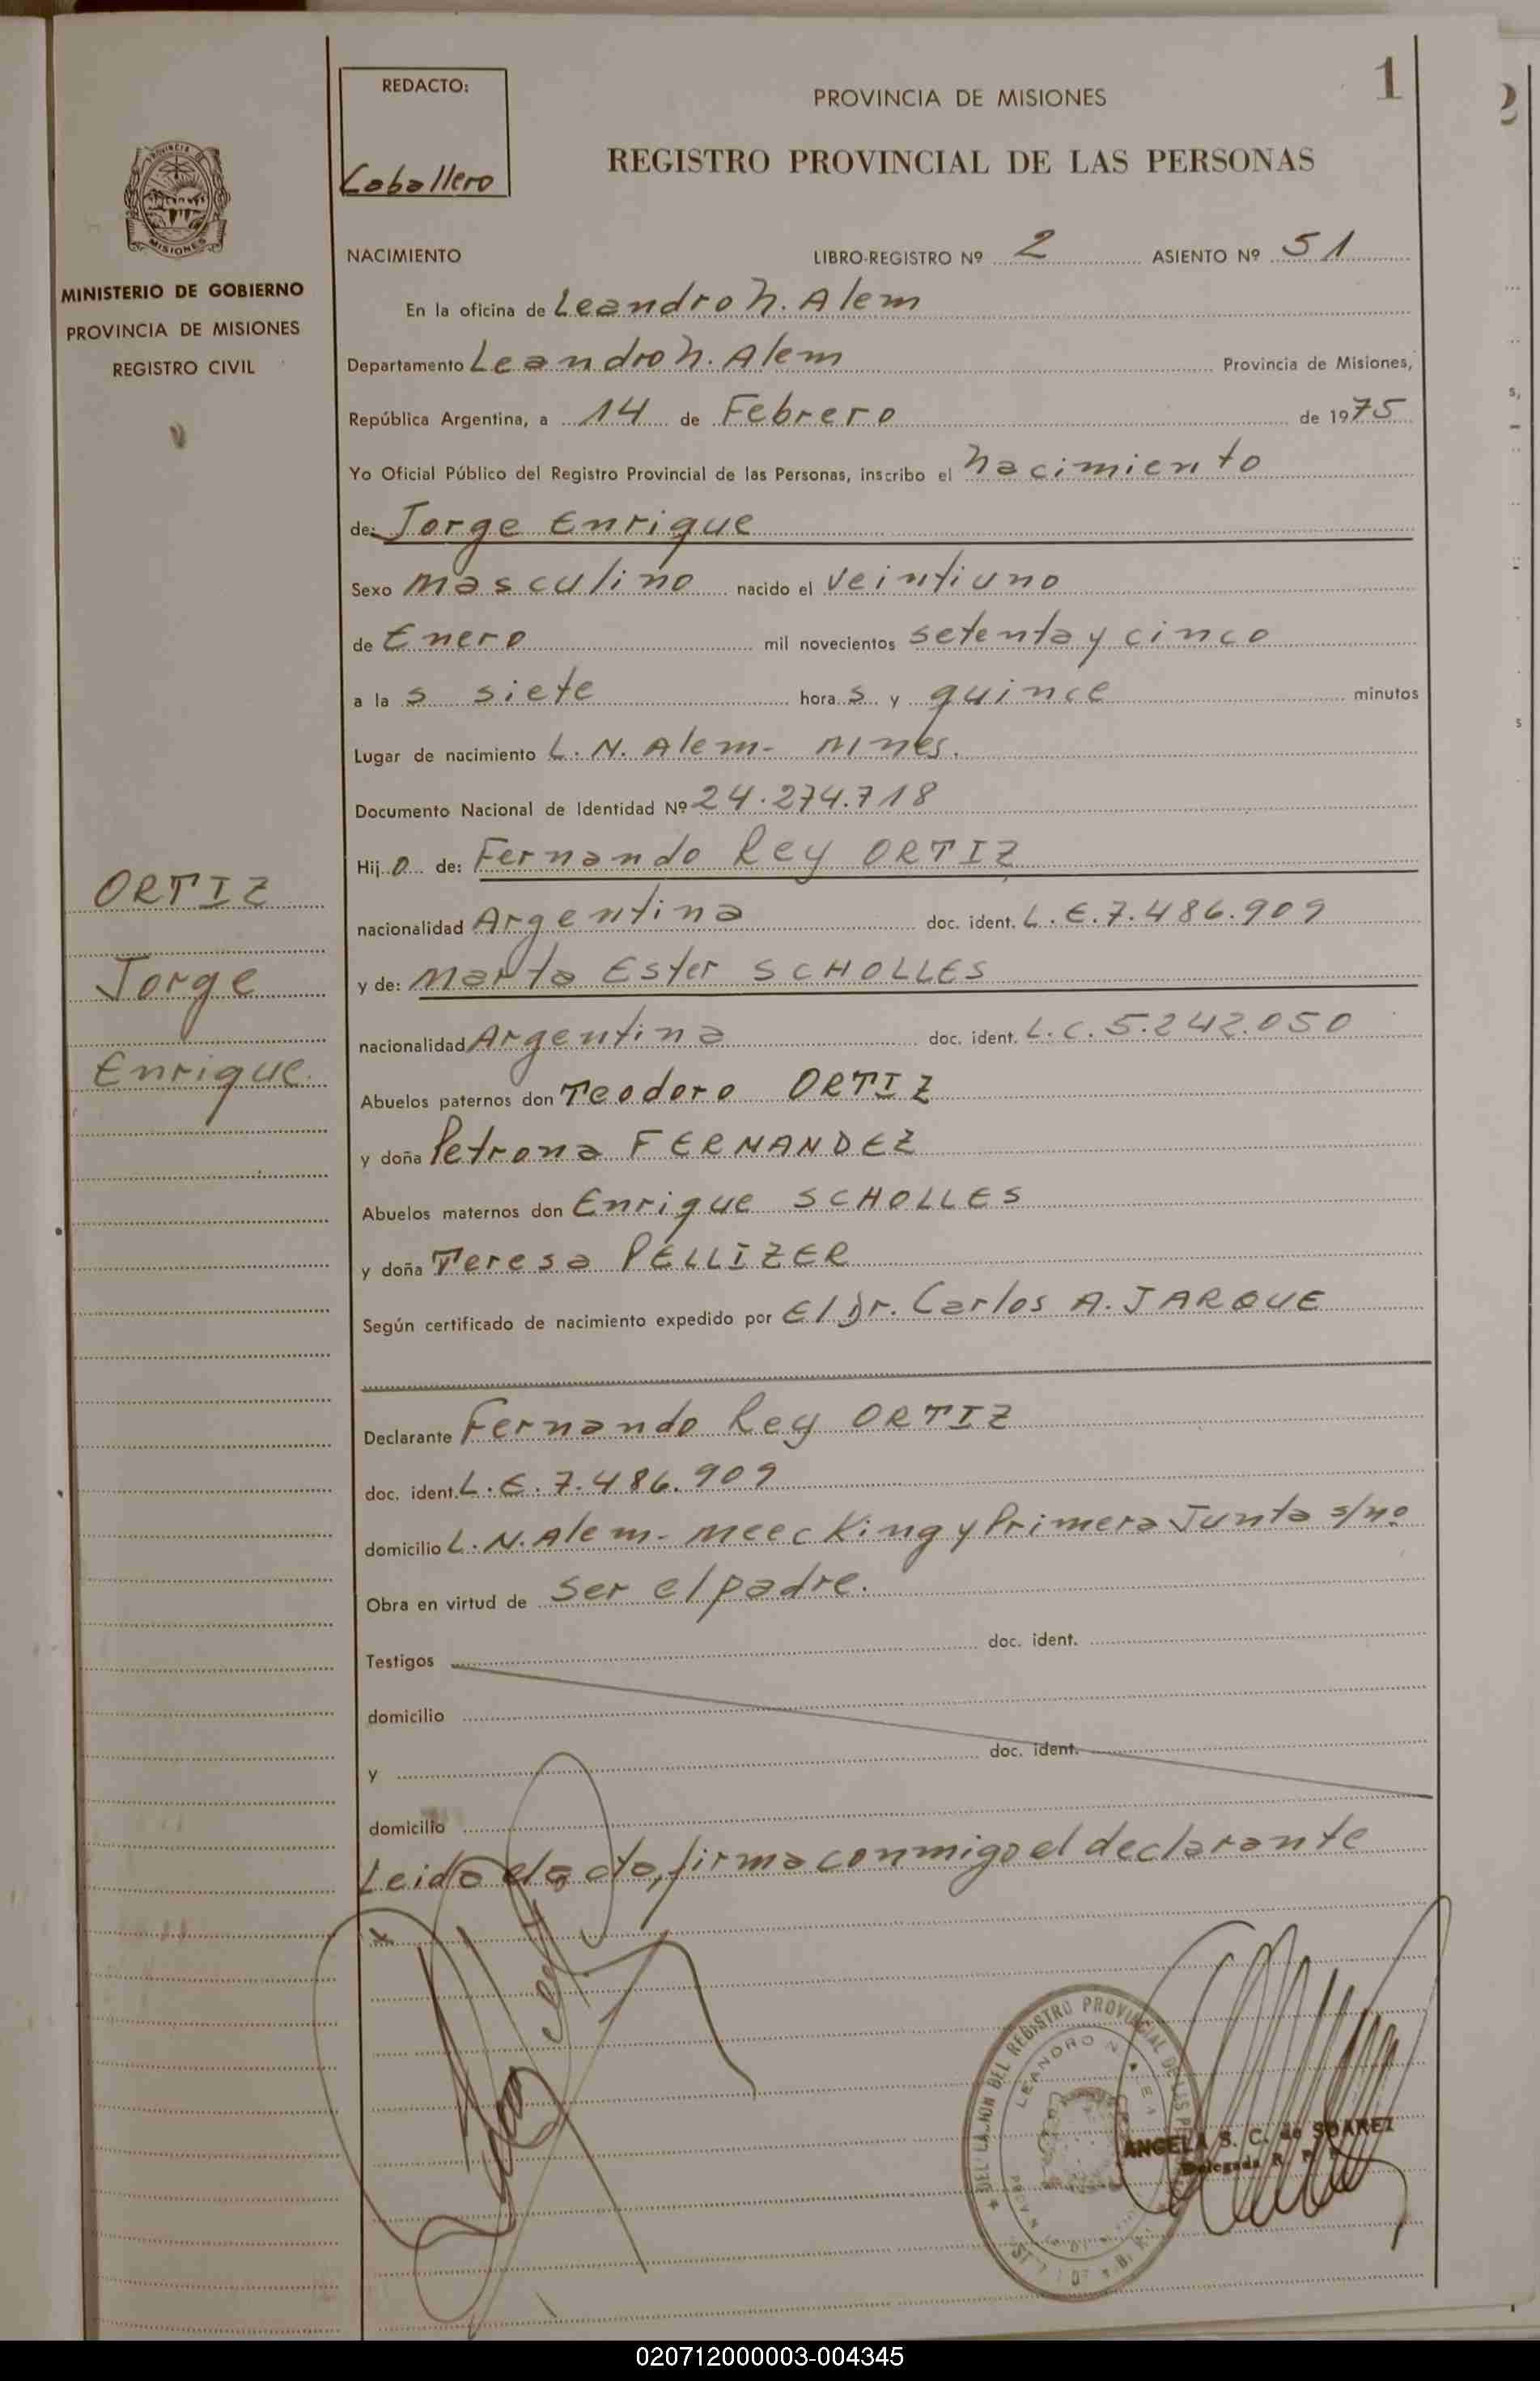 REDACTO:
Caballero
PROVINCIA DE MISIONES
1
REGISTRO PROVINCIAL DE LAS PERSONAS
PROVINCIA DE
MISIONES
MINISTERIO DE GOBIERNO
PROVINCIA DE MISIONES
REGISTRO CIVIL
NACIMIENTO LIBRO-REGISTRO Nº 2 ASIENTO Nº 51
En la oficina de Leandro N. Alem
Departamento Leandro N. Alem Provincia de Misiones,
República Argentina, a 14 de Febrero de 1975
Yo Oficial Público del Registro Provincial de las Personas, inscribo el nacimiento
de: Jorge Enrique
Sexo masculino nacido el veintiuno
de Enero mil novecientos setenta y cinco
a la s siete hora s y quince minutos
Lugar de nacimiento L. N. Alem- Mnes.
Documento Nacional de Identidad Nº 24.274.718
Hij o de: Fernando Rey ORTIZ
nacionalidad Argentina doc. ident. L.E. 7.486.909
y de: Marta Ester SCHOLLES
nacionalidad Argentina doc. ident. L.C. 5.242.050
Abuelos paternos don Teodoro ORTIZ
y doña Petrona FERNANDEZ
Abuelos maternos don Enrique SCHOLLES
y doña Teresa PELLIZER
Según certificado de nacimiento expedido por El Dr. Carlos A. JARQUE
ORTIZ
Jorge
Enrique.
Declarante Fernando Rey ORTIZ
doc. ident. L.E. 7.486.909
domicilio L.N. Alem- Meec King y Primera Junta s/nº
Obra en virtud de ser el padre.
Testigos doc. ident.
domicilio
y doc. ident.
domicilio
Leido el acta, firma conmigo el declarante
x
DEL REGISTRO PROVINCIAL DE LAS
LEANDRO N.
ANGELA S. C. de SUAREZ
Delegada R. P.
020712000003-004345